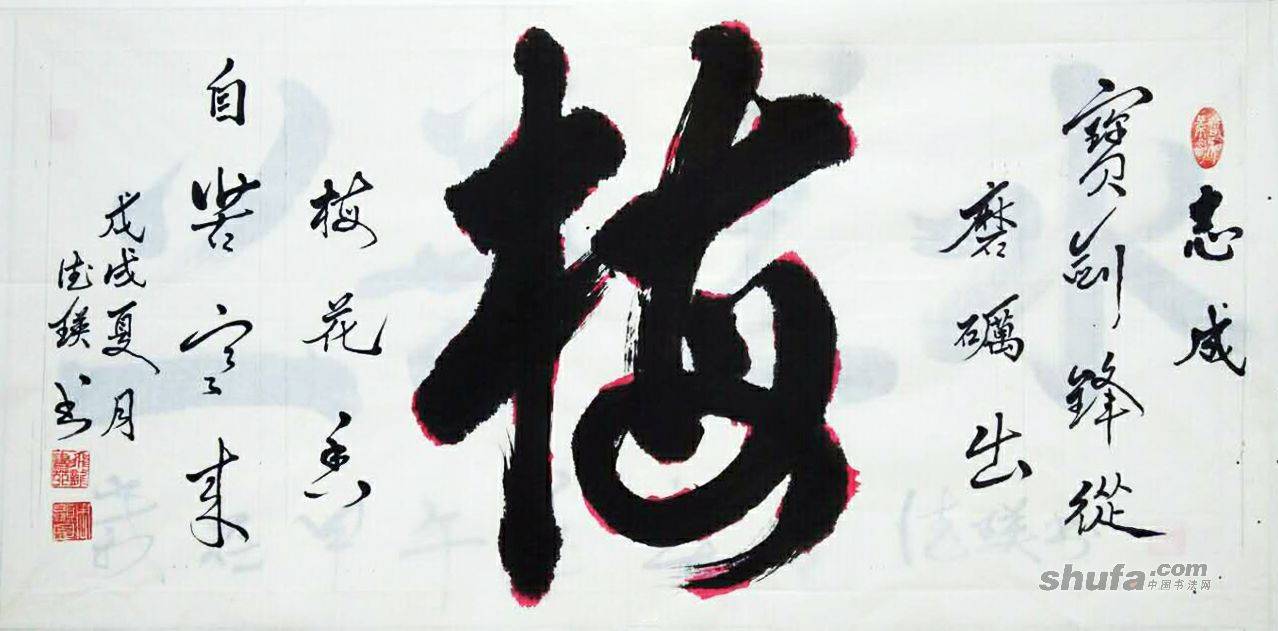 志成
寶劍鋒從
磨礪出
梅
梅花香
自苦寒來
戊戌夏月
德瑛书
shufa.com
中国书法网